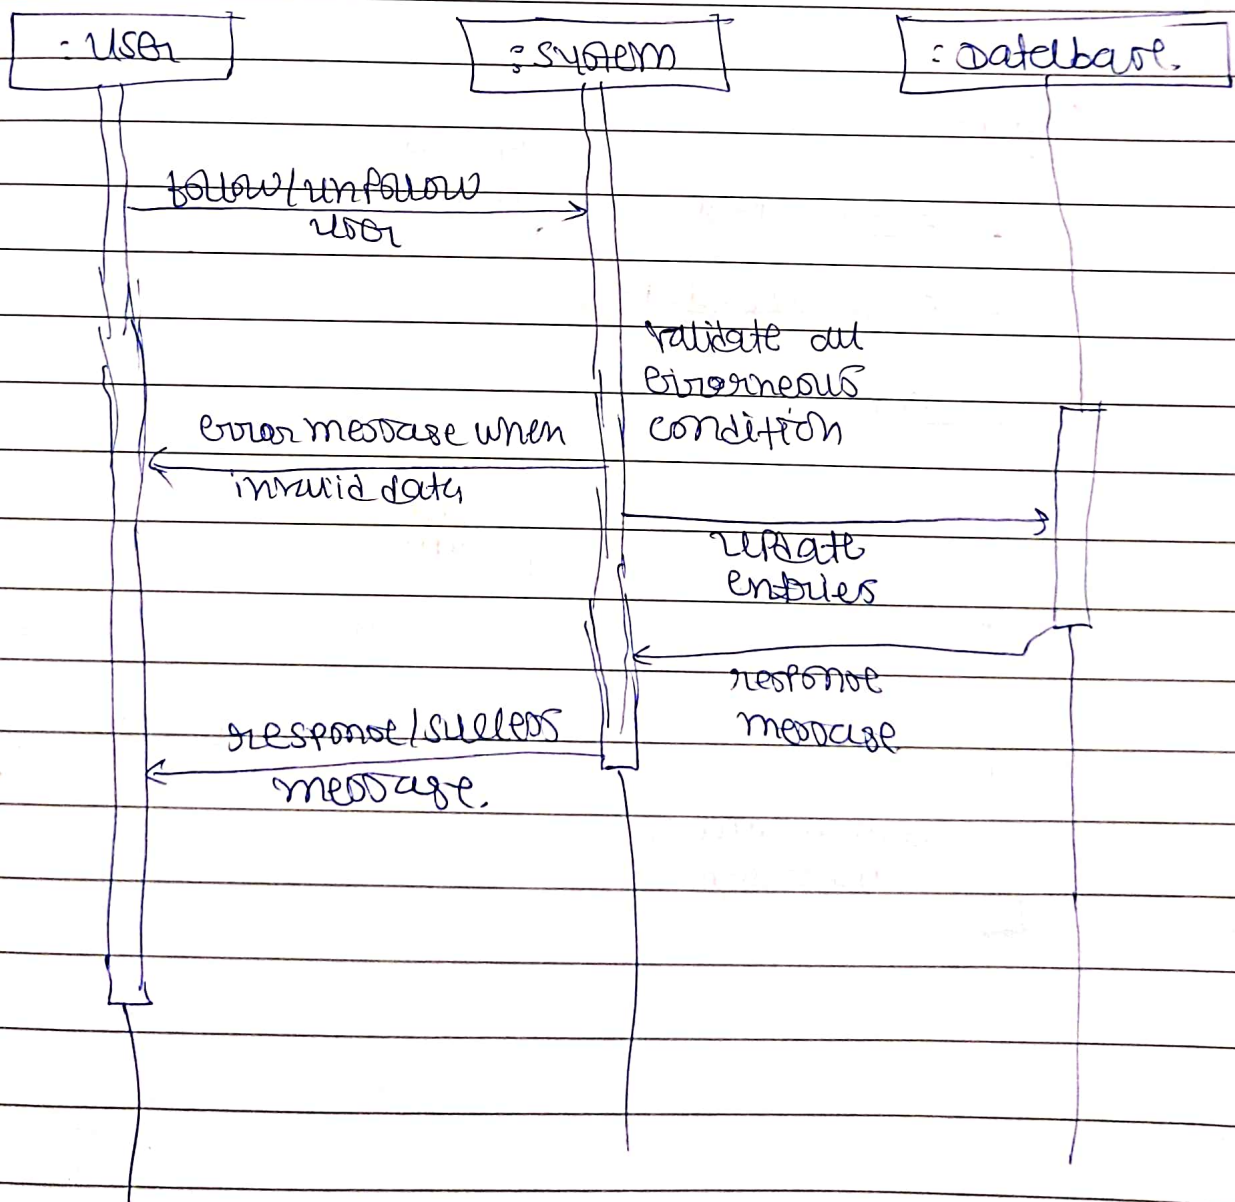 : User
: System
: Database.
follow/unfollow
user
validate all
errorneous
condition
error message when
invalid data
update
entries
response
message
response/success
message.